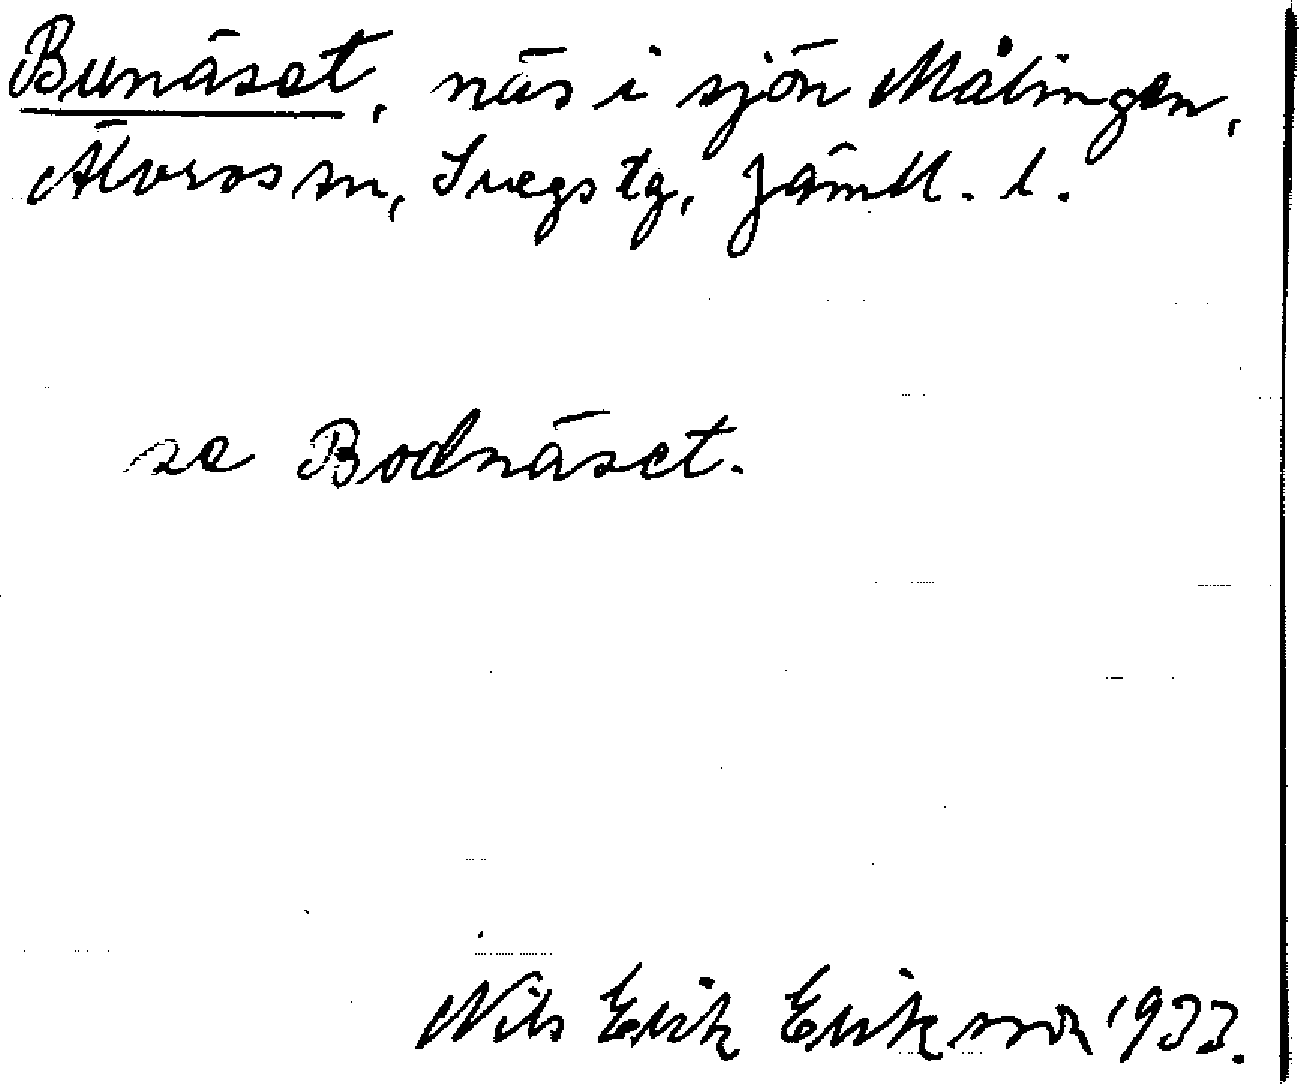 Bunäset, näs i sjön Målingen,
Älvros sn, Svegs tg, Jämtl. l.
se Bodnäset.
Nils Erik Eriksson 1933.